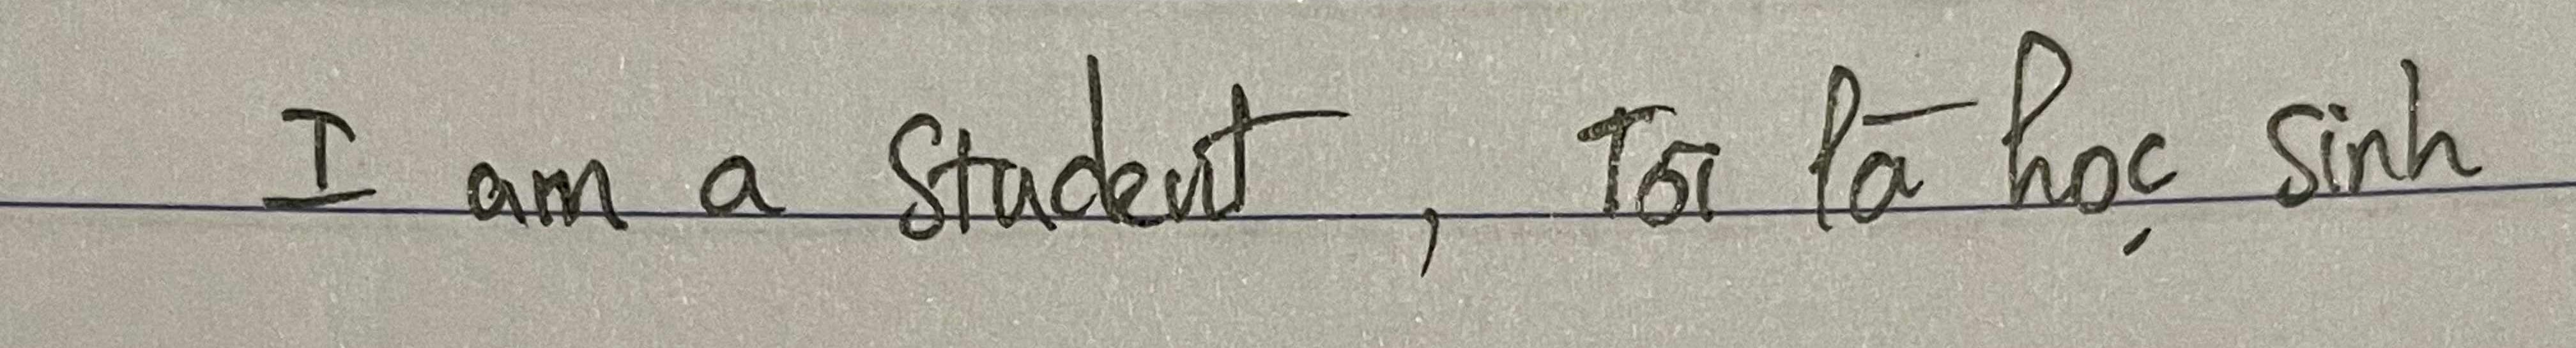 I am a student, Tôi là học sinh